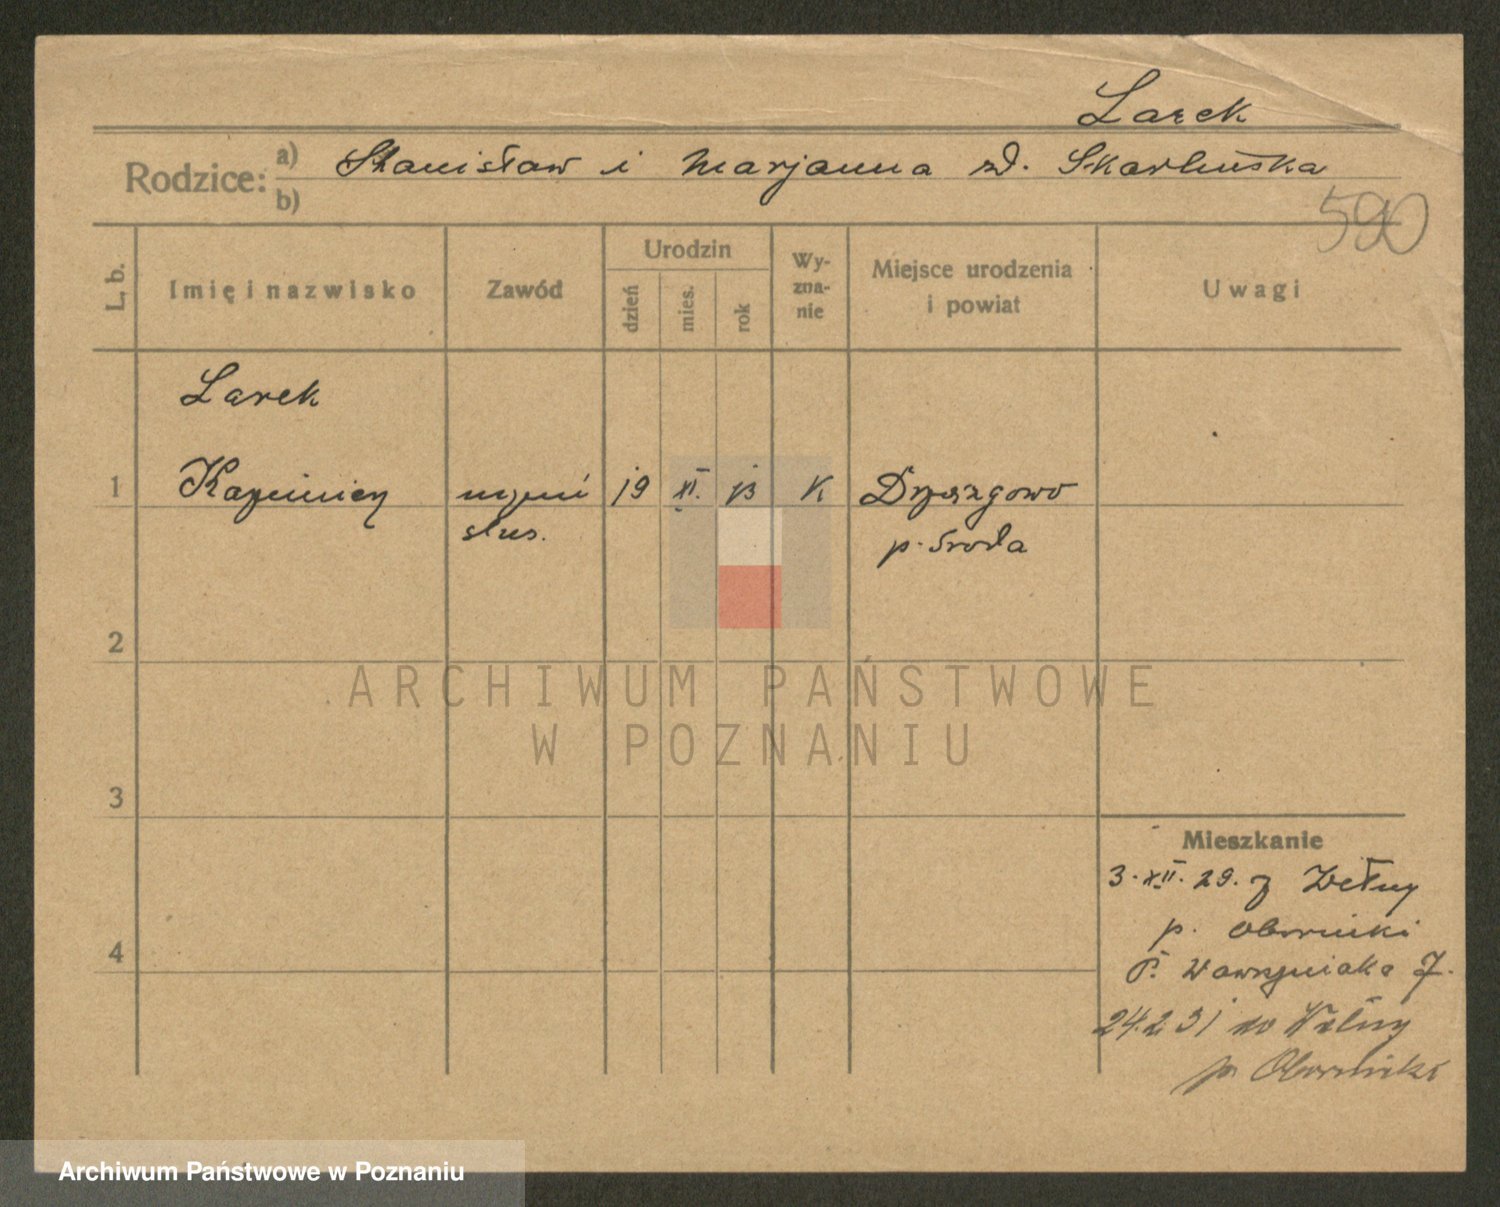 Larek
Rodzice: a) Stanisław i Marjanna zd. Skarlińska
b)
590
L. b.
Imię i nazwisko
Zawód
Urodzin
dzień
mies.
rok
Wy-
zna-
nie
Miejsce urodzenia
i powiat
Uwagi
Larek
1 Kazimierz 19 XI. 13 K Drzązgowo
p. Środa
2
ARCHIWUM PAŃSTWOWE
W POZNANIU
3
Mieszkanie
3. XII. 29. z Wełny
p. Oborniki
4
Wawrzyniaka 7.
24.2 31 do Wełny
p. Oborniki
Archiwum Państwowe w Poznaniu